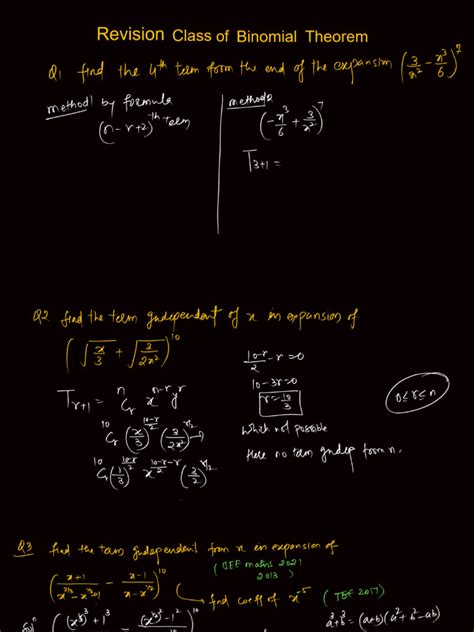 Revision Class of Binomial Theorem
Q1 find the 4th term from the end of the expansion (3/x² - x³/6)⁷
method1 by formula
(n-r+2)th term
method2
(-x³/6 + 3/x²)⁷
T₃₊₁ =
Q2 find the term independent of x in expansion of
(√(x/3) + √(3/2x²))¹⁰
Tᵣ₊₁ = ⁿCᵣ xⁿ⁻ʳ yʳ
¹⁰Cᵣ (x/3)^((10-r)/2) (3/2x²)^(r/2)
¹⁰Cᵣ (1/3)^((10-r)/2) x^((10-r)/2 - r) (3/2)^(r/2)
(10-r)/2 - r = 0
10-3r=0
r=10/3
which not possible
Here no term indep from x.
0≤r≤n
Q3 find the term independent from x in expansion of
((x+1)/(x^(2/3)-x^(1/3)+1) - (x-1)/(x-x^(1/2)))¹⁰
(JEE mains 2021
2013)
find coeff of x⁻⁵ (JEE 2017)
a³+b³ = (a+b)(a²+b²-ab)